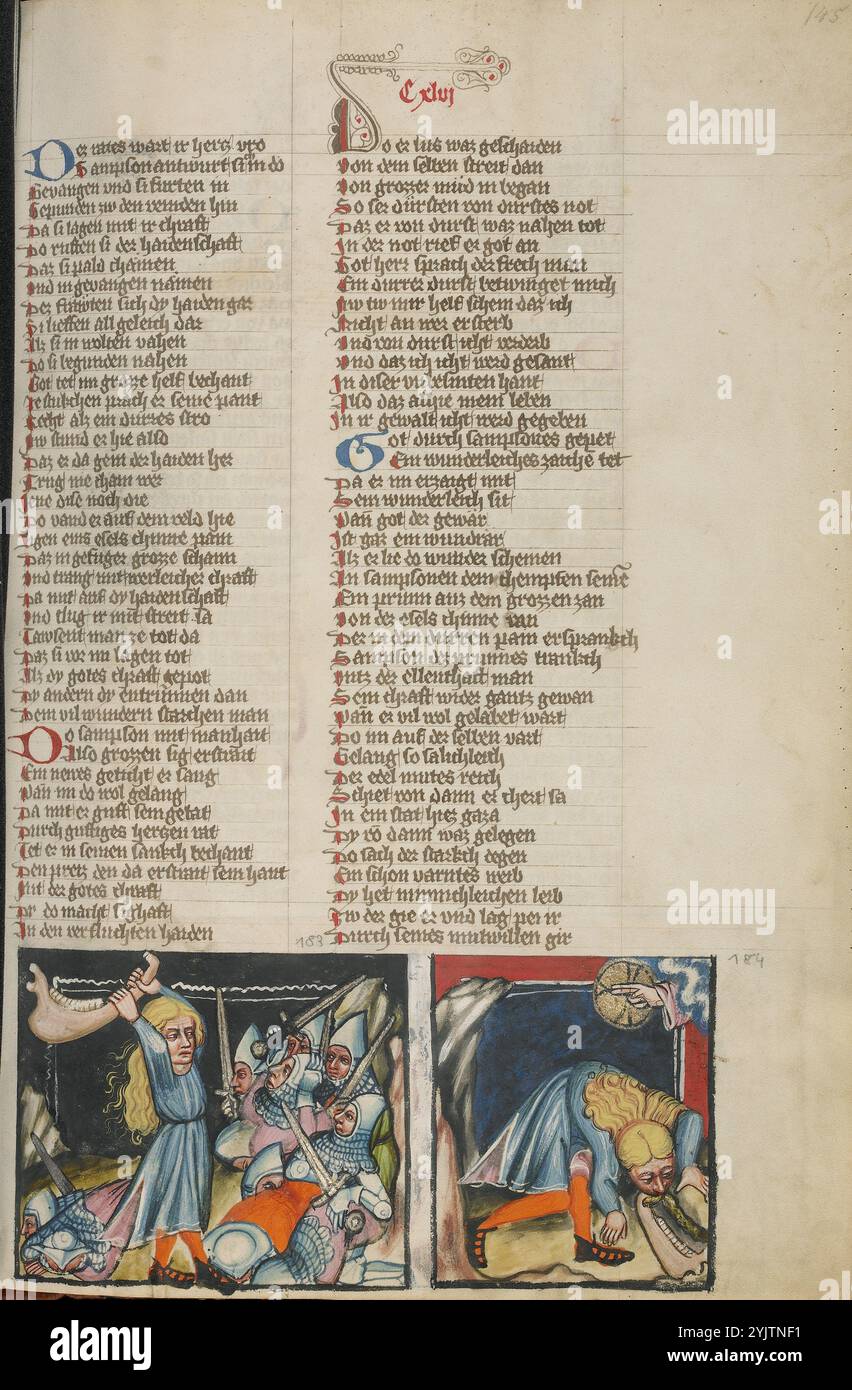 145
Cxlvj
Der rates wart ir hercz vro
Sampson antwurt si im do
Gevangen vnd si furten in
Gepunden zw den veinden hin
Da si lagen mit ir chraft
Do rufften si der haidenschaft
Daz si pald chämen
Vnd in gevangen nämen
Dez frawten sich dy haiden gar
Si lieffen all geleich dar
Alz si in wolten vahen
Do si begunden nahen
Got tet im grozze helf bechant
Ze stukchen prach er seine pant
Recht alz ein dürres stro
Nw stund er hie also
Daz er da gein der haiden her
Trug nie chain wer
Jene dise noch die
Do vand er auf dem veld hie
Ligen eins esels chinne pain
Daz mit
Vnd twang mit werleicher chraft
Da mit auf dy haidenschaft
Vnd slug ir mit streit sa
Tawsent man ze tot da
Daz si vor im lagen tot
Alz dy gotes chraft gepot
Dy andern dy entrunnen dan
Dem vil wundern starchen man
Do sampson mit manhait
Also grozzen sig erstrait
Ein newes geticht er sang
Wan im do wol gelang
Da mit er guff sein getat
Durch guftiges herczen rat
Tet er in seinen sankch bechant
Den preiz den da erstrait sein hant
Mit der gotes chraft
Dy do macht sighaft
In den verfluchten haiden
Do er sus waz gescheiden
Von dem selben streit dan
Von grozzer müd in began
So ser dürsten von durstes not
Daz er von durst waz nahen tot
In der not rief er got an
Got herr sprach der frech man
Ein dürrer durst betwinget mich
Nw tw mir helf schein daz ich
Nicht an wer ersterb
Vnd von durst icht verderb
Vnd daz ich icht werd gesant
In diser vnbesniten hant
Also daz ane mein leben
In ir gewalt icht werd gegeben
Got durch sampsones gepet
Ein wunderleiches zaichen tet
Da er im erzaigt mit
Sein wunderleich sit
Wan got der gewär
Ist gar ein wundrär
Alz er lie do wunder scheinen
An sampsonen dem chempfen seinen
Ein prunn auz dem grozzen zan
Von dez esels chinne ran
Der in dem dürren pain ersprankch
Sampson dez prunnes trankch
Vntz der ellenthaft man
Sein chraft wider gantz gewan
Wan er vil wol gelabet wart
Do im auf der selben vart
Gelang so sälichleich
Der edel mutes reich
Schiet von dann er chert sa
In ein stat hiez gaza
Dy vo dann waz gelegen
Do sach der starkch degen
Ein schon varntes weib
Dy het minnichleichen leib
Zw der gie er vnd lag pei ir
Durch seines mutwillen gir
183
184
alamy
Image ID: 2YJTNF1
www.alamy.com